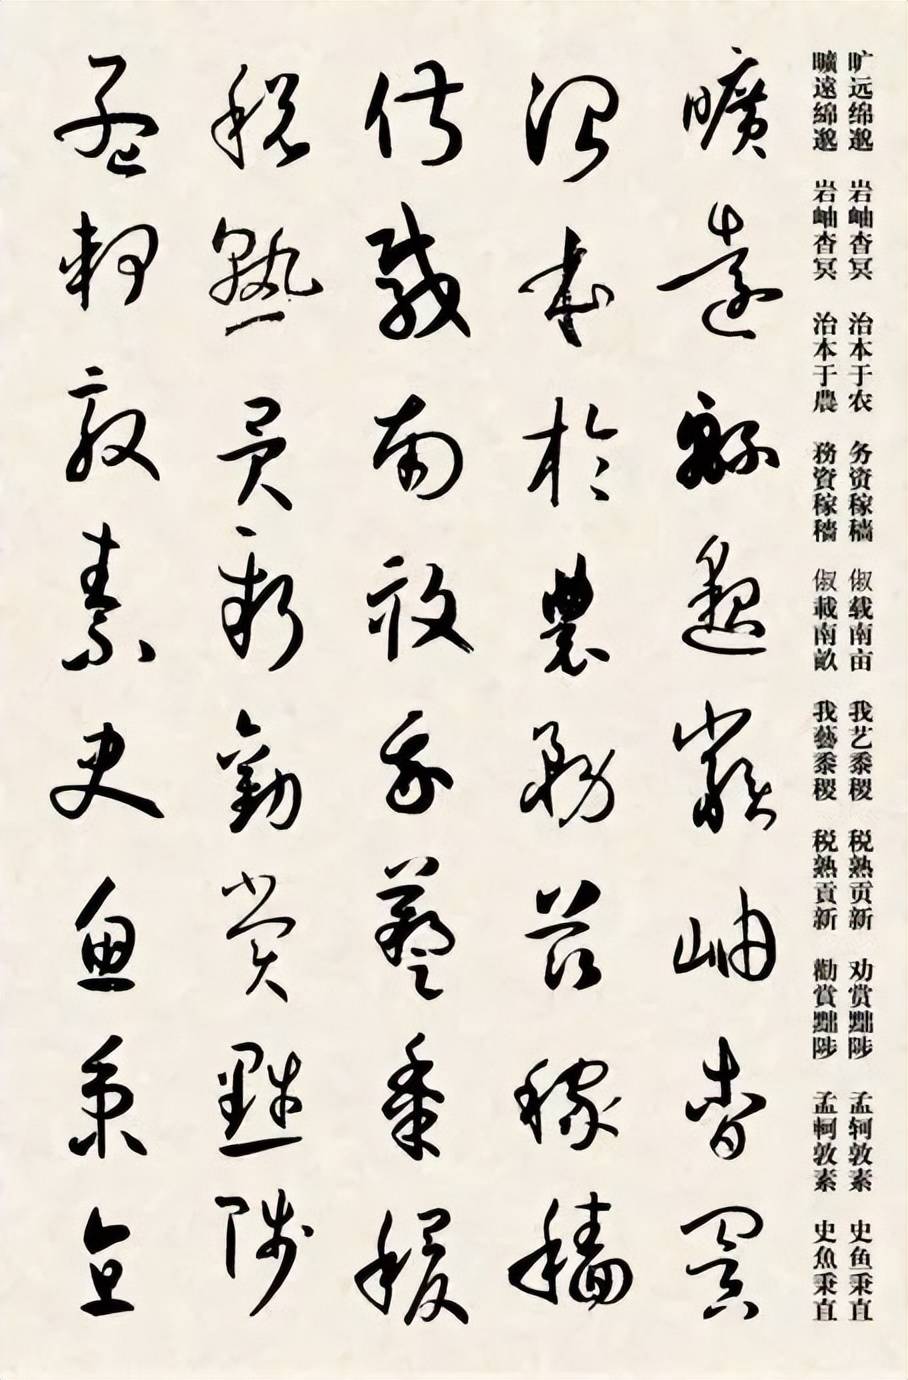 旷远绵邈 岩岫杳冥 治本于农 务资稼穑 俶载南亩 我艺黍稷 税熟贡新 劝赏黜陟 孟轲敦素 史鱼秉直
曠遠綿邈 岩岫杳冥 治本于農 務資稼穡 俶載南畝 我藝黍稷 税熟貢新 勸賞黜陟 孟軻敦素 史魚秉直
曠遠綿邈巖岫杳冥
治本於農務茲稼穡
俶載南畝我藝黍稷
税熟貢新勸賞黜陟
孟軻敦素史魚秉直